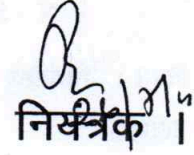 नियंत्रक ।